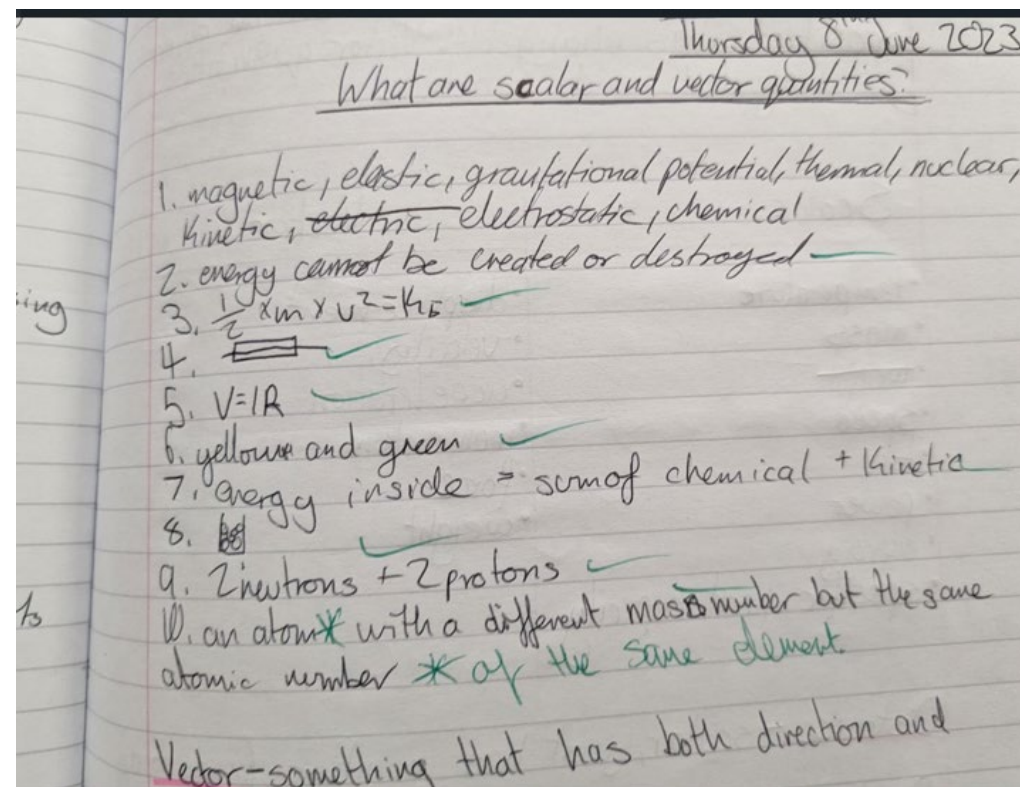 Thursday 8th June 2023
What are scalar and vector quantities?
1. magnetic, elastic, gravitational potential, thermal, nuclear,
kinetic, electric, electrostatic, chemical
2. energy cannot be created or destroyed
ing
3. 1/2 × m × v² = KE
4.
5. V=IR
6. yellow and green
7. energy inside = sum of chemical + kinetic
8.
9. 2 neutrons + 2 protons
ts
10. an atom* with a different mass number but the same
atomic number * of the same element.
Vector-something that has both direction and